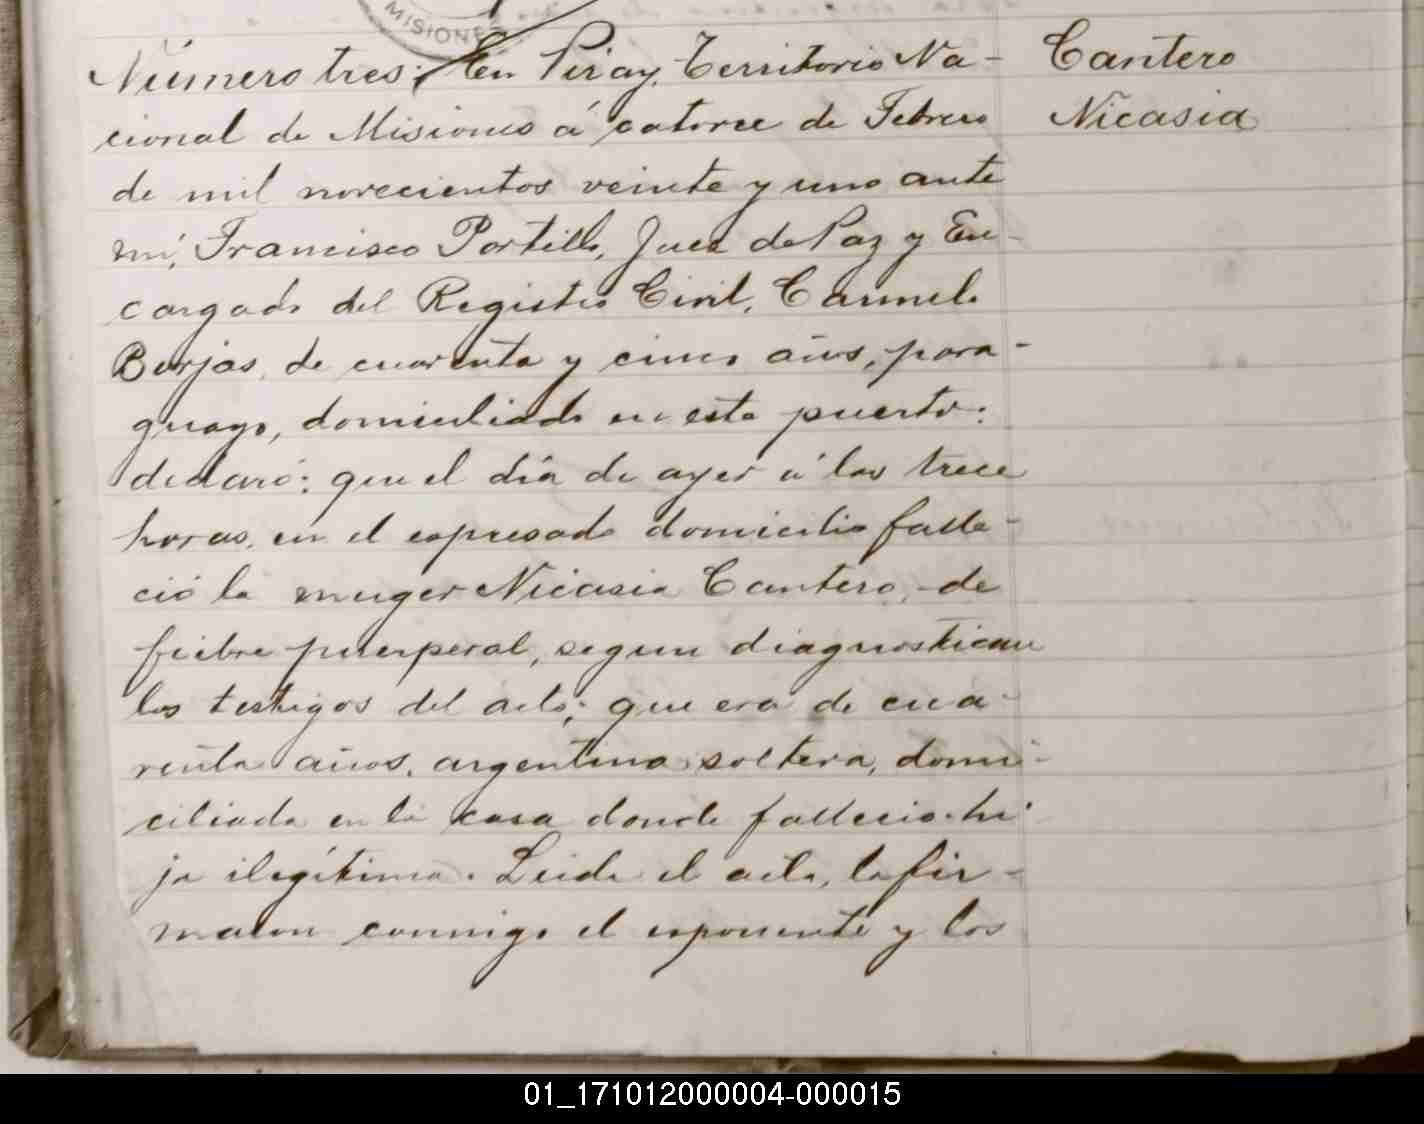 MISIONES
Número tres: En Piray, Territorio Na-
cional de Misiones á catorce de Febrero
de mil novecientos veinte y uno ante
mi, Francisco Portillo, Juez de Paz y En-
cargado del Registro Civil, Carmelo
Borjas, de cuarenta y cinco años, para-
guayo, domiciliado en este puerto:
declaró: que el día de ayer á las trece
horas, en el expresado domicilio falle-
ció la muger Nicasia Cantero, de
fiebre puerperal, segun diagnostican
los testigos del acto; que era de cua-
renta años, argentina soltera, domi-
ciliada en la casa donde fallecio. hi-
ja ilegítima. Leida el acta, la fir-
maron conmigo el exponente y los
Cantero
Nicasia
01_171012000004-000015